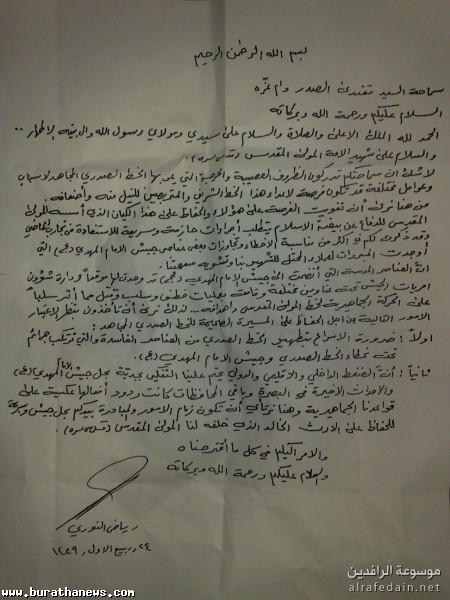 بسم الله الرحمن الرحيم
سماحة السيد مقتدى الصدر دام عزّه
السلام عليكم ورحمة الله وبركاته
الحمد لله الملك الاعلى والصلاة والسلام على سيدي ومولاي رسول الله وال بيته الاطهار ..
والسلام على شهيد الامة المولى المقدس (قدس سره).
لاشك ان سماحتكم تدركون الظروف العصيبة والحرجة التي يمر بها الخط الصدري المجاهد لاسباب
وعوامل مختلفة قد تكون فرصة لاعداء هذا الخط الشريف والمتربصين للنيل منه واضعافه.
من هنا نرى أن تفويت الفرصة على هؤلاء والحفاظ على هذا الكيان الذي أسسه المولى
المقدس للدفاع عن بيضة الاسلام يتطلب اجراءات حازمة وسريعة للاستفادة من تجارب الماضي
وقد ذكرت لكم في أكثر من مناسبة الاخطاء وتجاوزات بعض عناصر جيش الامام المهدي (عج) التي
أوجدت المبررات لاعداء الخط للتشهير بنا وتشويه سمعتنا.
انّ العناصر المندسة التي أنضمت الى جيش الامام المهدي (عج) قد وجدت لها موقعاً وادارة شؤون
امريات الجيش تحت عناوين مختلفة وقامت بعمليات خطف وسلب وقتل مما أثر سلباً
على الحركة الجماهيرية لخط المولى المقدس واهدافه... لذلك نرى أن تأخذون بنظر الاعتبار
الامور التالية من اجل الحفاظ على المسيرة الصحيحة للخط الصدري المجاهد:
اولاً: ضرورة الاسراع بتطهير الخط الصدري من العناصر الفاسدة والتي ترتكب جرائم
تحت غطاء الخط الصدري وجيش الامام المهدي (عج).
ثانياً: أن الضغط الداخلي والاقليمي والدولي يحتم علينا التفكير بجدية بحل جيش الامام المهدي (عج)
والاحداث الاخيرة في البصرة وباقي المحافظات كانت ردود أفعالها عكسية على
قواعدنا الجماهيرية وهنا نرتأي أن تكون زمام الامور والمبادرة بيدكم بحل جيش
للحفاظ على الارث الخالد الذي خلفه لنا المولى المقدس (قدس سره).
والامر اليكم في كل ما أقترحناه
والسلام عليكم ورحمة الله وبركاته
رياض النوري
٢٤ ربيع الاول، ١٤٢٩
موسوعة الرافدين
alrafedain.net
www.burathanews.com
www.burathanews.com